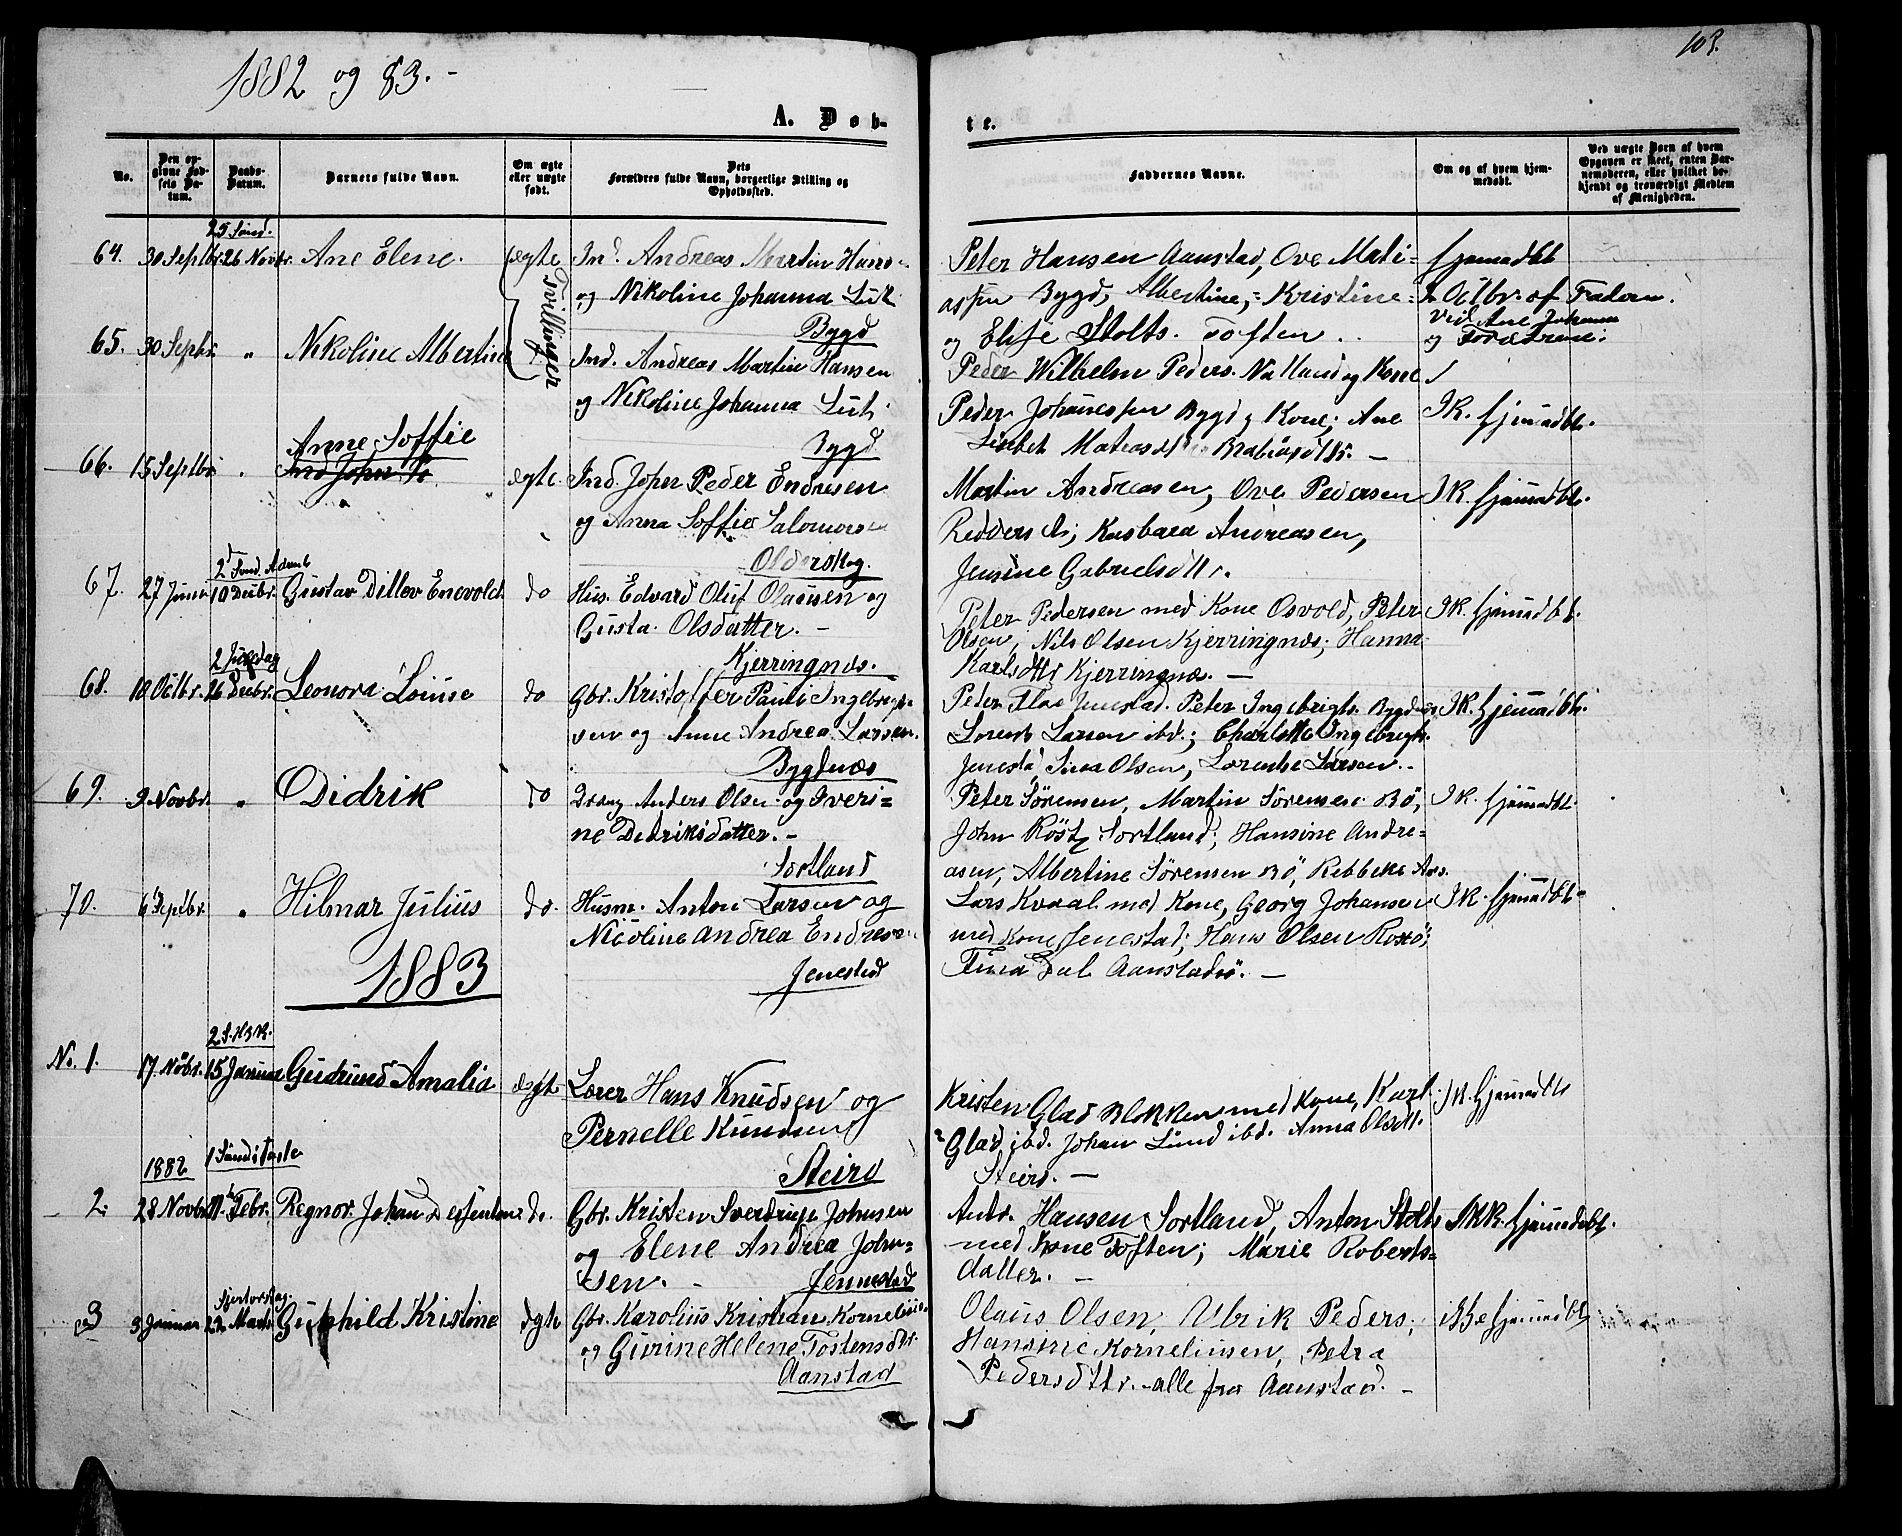 1882 og 83. -
103.
A. Døb-
te.
No.
Den opgivne Fødsels Datum.
Daabs-Datum.
Barnets fulde Navn.
Om ægte eller uægte født.
Dets Forældres fulde Navn, borgerlige Stilling og Opholdssted.
Faddernes Navne.
Om og af hvem hjemmedøbt.
Ved uægte Børn af hvem Opgaven er skeet, enten Barnemoderen, eller hvilket bekjendt og troværdigt Medlem af Menigheden.
25 Sönd.
64. 30 Septbr. 26 Novbr. Ane Elene. ægte Ind. Andreas Martin Hans-
og Nikoline Johanna
Bygd
Peter Hansen Aanstad, Ove Mati-
Bygd, Albertine, Kristine
og Elise Stolts. Toften.
hjemmedbt
Octbr. af Faderen.
ved Ane Johanna
og Forældrene.
Tvillinger
65. 30 Septr. " Nikoline Albertine Ind. Andreas Martin Hansen
og Nikoline Johanna
Bygd
Peder Wilhelm Peders. og Kone
Peder Johanessen Bygd, Kone; Ane
Lisbet
IK. hjemmedbt.
Anne Soffie
66. 15 Septbr. " ægte. Ind. Johan Peder Endresen
og Anna Soffie Salomons
Olderskog.
Martin Andreasen, Ove Pedersen
Andreasen,
Jensine Gabrielsdttr.
IK. hjemmedbt.
2d Sönd. Advent
67. 27 Juni 10 Decbr. Gustav Ditlev Enevold do Hus. Edvard Oluf Olausen og
Gusta Olsdatter. -
Kjerringnæs.
Peter Pedersen med Kone Osvold, Peter
Olsen, Nils Olsen Kjerringnæs; Hanna
Karlsdttr Kjerringnæs. -
IK. hjemmedbt.
2 Juledag
68. 10 Octbr. 26 Decbr. Leonora Louise do Gbr. Kristoffer Pauli Ingebrigt-
sen og Anne Andrea Larsen.
Bygdnæs
Peter Jenestad. Peter Ingebrigts. Bygdnæs
Lorents Larsen ibd.; Charlotte Ingebrigts.
Jenestd, Sina Olsen, Lorentse Larsen.
IK. hjemmedbt.
69. 9 Novbr. " Didrik do Dreng Anders Olsen og Iveri-
ne Didriksdatter. -
Sortland
Peter Sörensen, Martin Sörensen Bö,
John Röst Sortland; Hansine Andre-
asen, Albertine Sörensen Bö, Rebbeke
IK. hjemmedbt.
70. 6 Septbr. " Hilmar Julius do. Husm. Anton Larsen og
Nicoline Andrea Endres
Jenestad
Lars Kvaal med Kone, Georg Johansen
med Kone Jenestad; Hans Olsen
Tina Dal Aanstad. -
IK. hjemmedbt.
1883
2 S. H3K.
No. 1. 17 Nobr. 15 Januar Gudrund Amalia ægte Lærer Hans Knudsen og
Pernelle Knudsen
Steirö
Kristen Glad Blokken med Kone, Karl
Glad ibd. Johan Lund ibd. Anna Olsdtt.
Steirö. -
IK. hjemmedbt
1882
1 Sönd. i Faste
2. 28 Novbr 11te Febr. Regnor Johan do. Gbr. Kristen Sverdrup Johnsen
og Elene Andrea John-
sen. - Jennestad
Andr. Hansen Sortland, Anton Stolts
med Kone Toften; Marie Roberts-
datter. -
IKK. hjemmedbt.
Skjertorsdag.
3 3 Januar 22 Marts Gunhild Kristine ægte Gbr. Karolius Kristian Kornelius.
og Gurine Helene Tostensdttr
Aanstad
Olaus Olsen, Ulrik Peders.
Hansine Korneliusen, Petra
Pedersdttr. alle fra Aanstad. -
ikke hjemmedbt